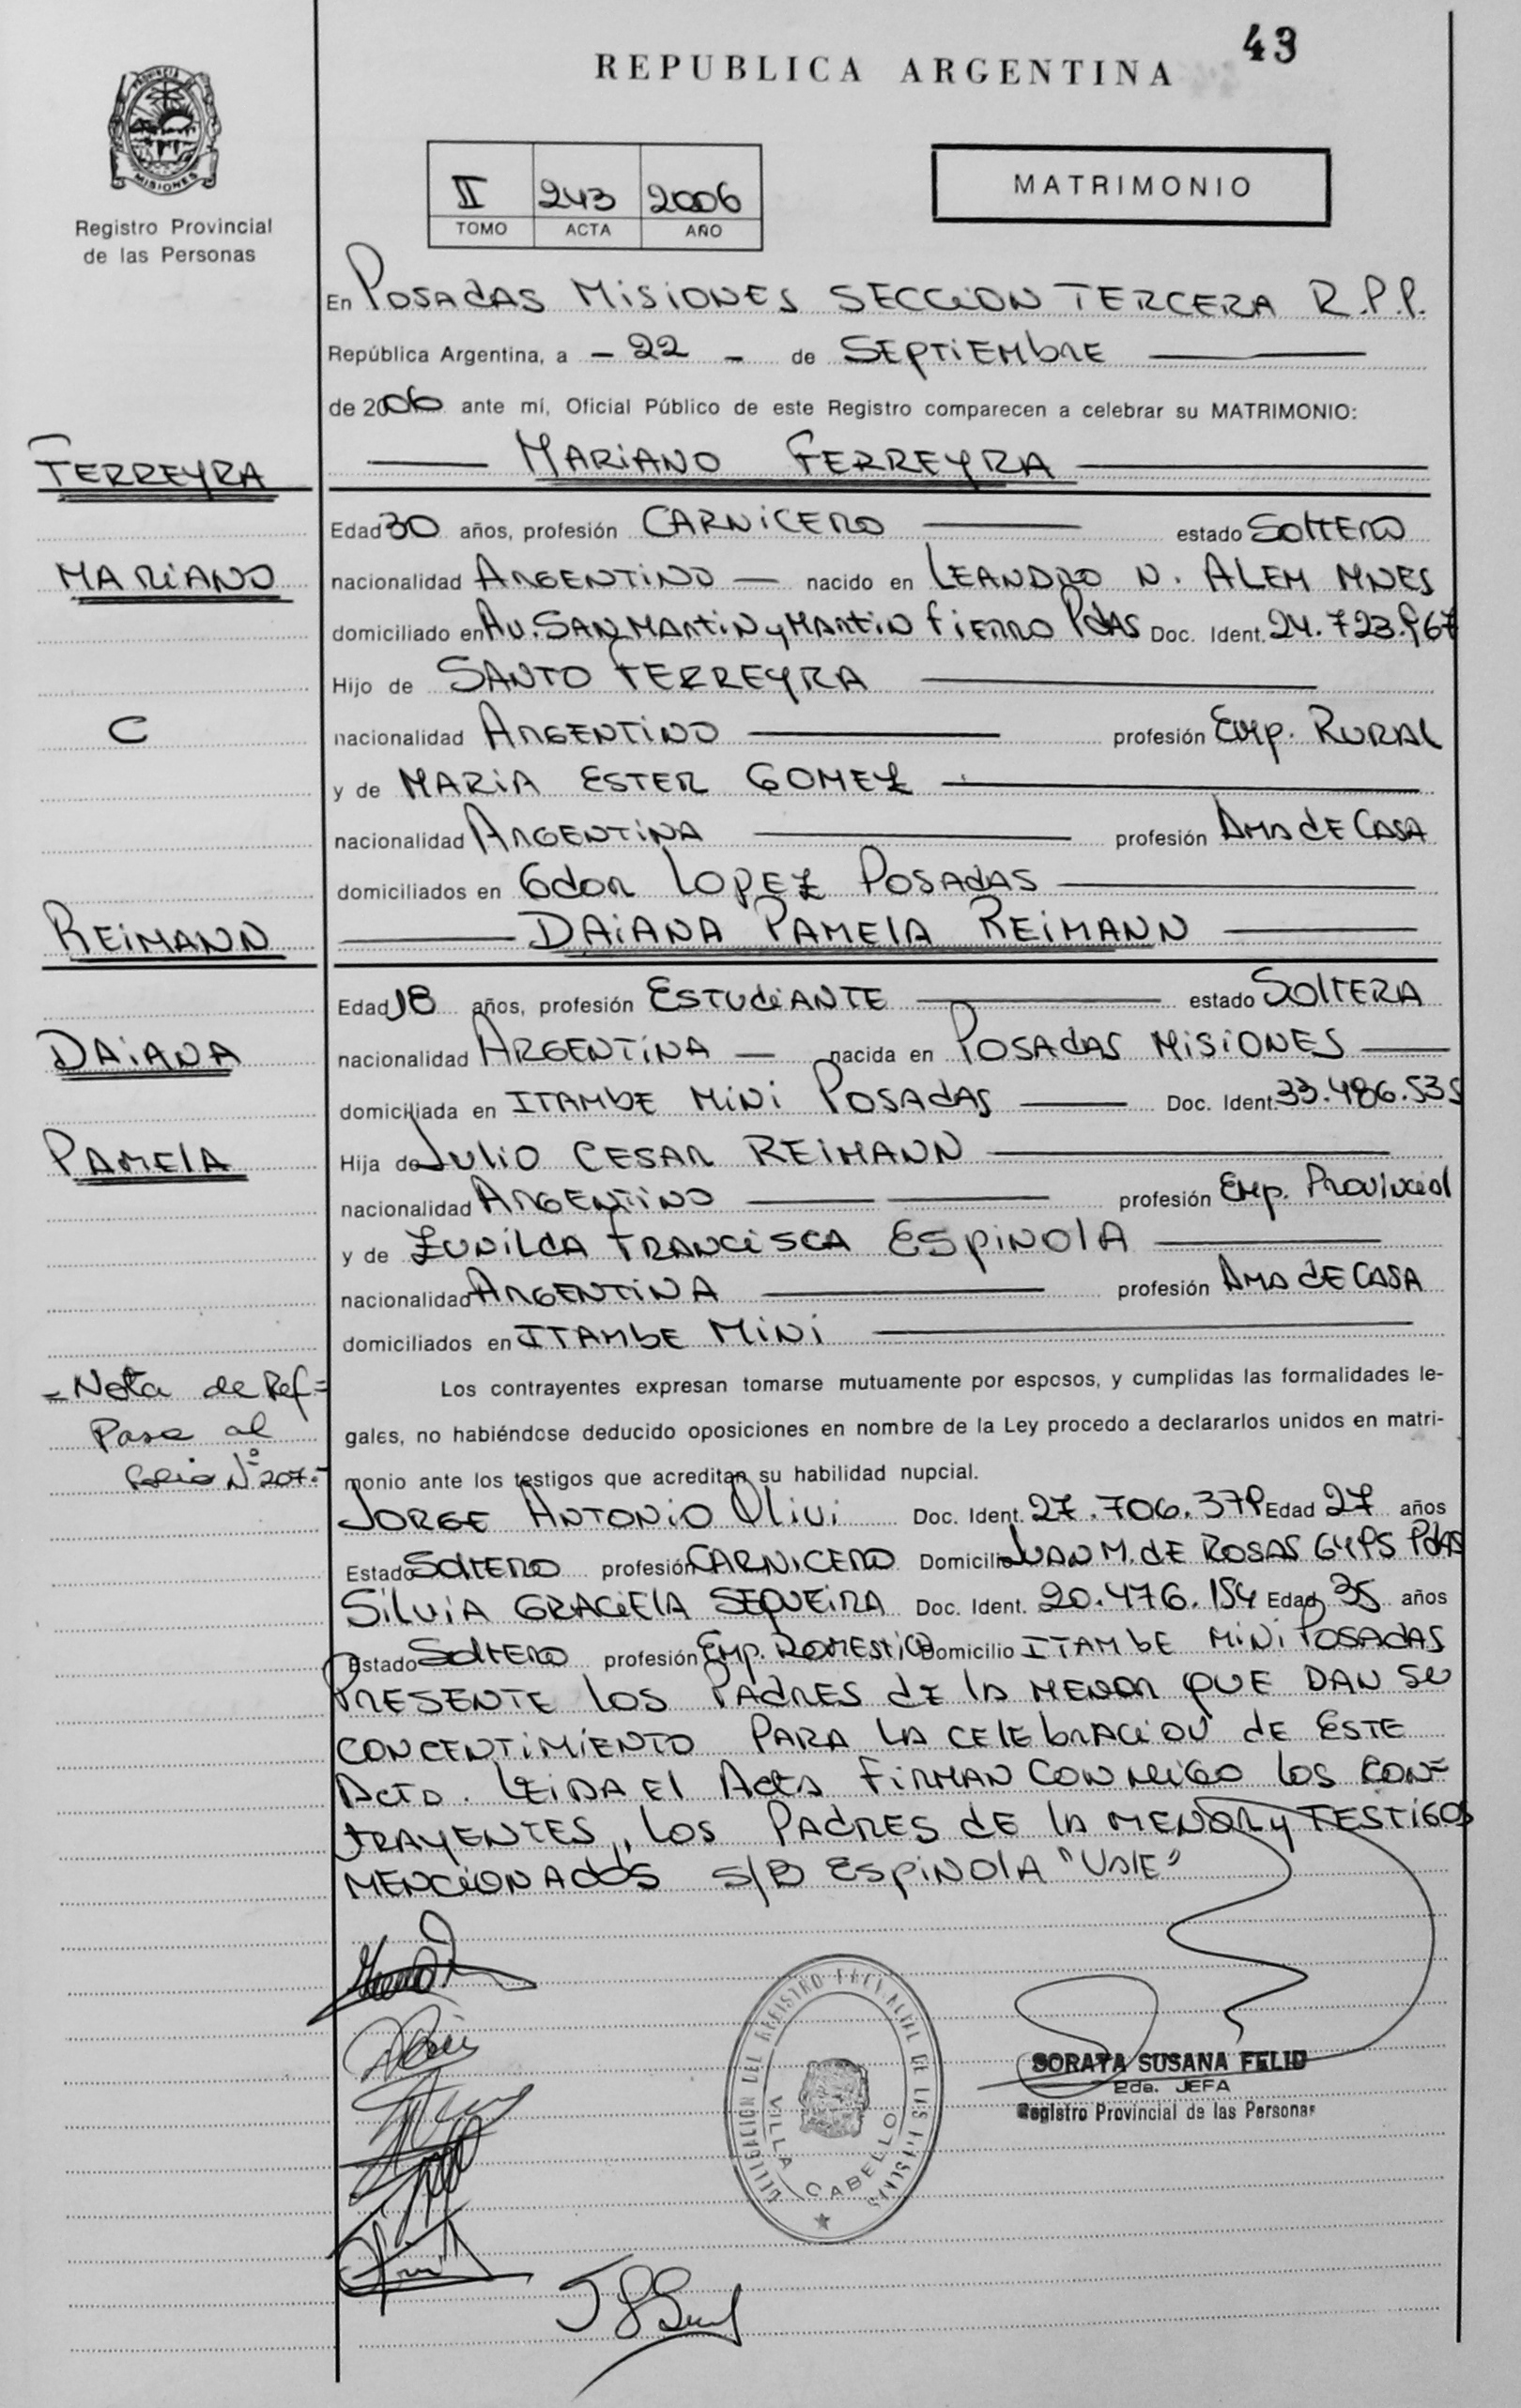 49
REPUBLICA ARGENTINA
MISIONES
Registro Provincial
de las Personas
II 243 2006
TOMO ACTA AÑO
MATRIMONIO
En POSADAS MISIONES SECCION TERCERA R.P.P.
República Argentina, a - 22 - de SEPTIEMBRE
de 2006 ante mí, Oficial Público de este Registro comparecen a celebrar su MATRIMONIO:
FERREYRA
MARIANO FERREYRA
Edad 30 años, profesión CARNICERO estado SOLTERO
MARIANO
nacionalidad ARGENTINO nacido en LEANDRO N. ALEM MNES
domiciliado en AV. SAN MARTIN y MARTIN FIERRO PDAS Doc. Ident. 24.723.967
Hijo de SANTO FERREYRA
C
nacionalidad ARGENTINO profesión Emp. RURAL
y de MARIA ESTER GOMEZ
nacionalidad ARGENTINA profesión AMA DE CASA
domiciliados en Gdor LOPEZ POSADAS
REIMANN
DAIANA PAMELA REIMANN
Edad 18 años, profesión ESTUDIANTE estado SOLTERA
DAIANA
nacionalidad ARGENTINA nacida en POSADAS MISIONES
domiciliada en ITAMBE MINI POSADAS Doc. Ident. 33.486.535
PAMELA
Hija de JULIO CESAR REIMANN
nacionalidad ARGENTINO profesión Emp. Provincial
y de ZUNILDA FRANCISCA ESPINOLA
nacionalidad ARGENTINA profesión AMA DE CASA
domiciliados en ITAMBE MINI
= Nota de Ref =
Pasa al
folio Nº 207.-
Los contrayentes expresan tomarse mutuamente por esposos, y cumplidas las formalidades le-
gales, no habiéndose deducido oposiciones en nombre de la Ley procedo a declararlos unidos en matri-
monio ante los testigos que acreditan su habilidad nupcial.
JORGE ANTONIO OLIVI Doc. Ident. 27.706.379 Edad 27 años
Estado SOLTERO profesión CARNICERO Domicilio JUAN M. DE ROSAS 6495 PDAS
SILVIA GRACIELA SEQUEIRA Doc. Ident. 20.476.154 Edad 35 años
Estado SOLTERO profesión Emp. DOMESTICO Domicilio ITAMBE MINI POSADAS
PRESENTE LOS PADRES DE LA MENOR QUE DAN SU
CONCENTIMIENTO PARA LA CELEBRACION DE ESTE
ACTO. LEIDA EL ACTA FIRMAN CONMIGO LOS CON=
TRAYENTES, LOS PADRES DE LA MENOR y TESTIGOS
MENCIONADOS S/B ESPINOLA "VALE"
DELEGACION DEL REGISTRO PROVINCIAL DE LAS PERSONAS
VILLA CABELLO
SORAYA SUSANA FELIP
2da. JEFA
Registro Provincial de las Personas